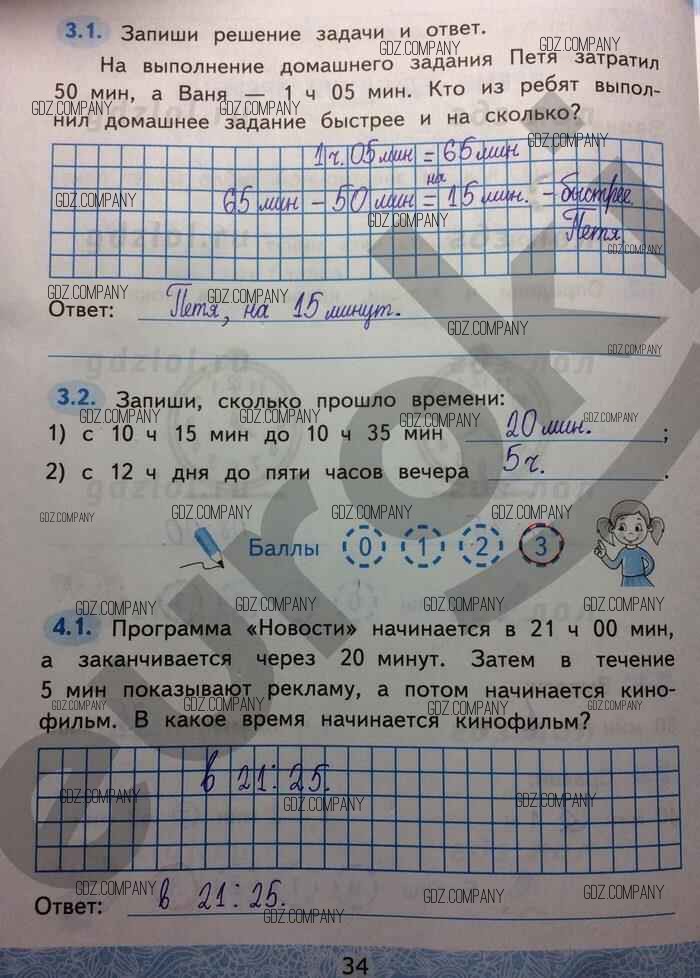 3.1. Запиши решение задачи и ответ.
GDZ.COMPANY GDZ.COMPANY
На выполнение домашнего задания Петя затратил
50 мин, а Ваня — 1 ч 05 мин. Кто из ребят выпол-
GDZ.COMPANY GDZ.COMPANY GDZ.COMPANY GDZ.COMPANY
нил домашнее задание быстрее и на сколько?
1 ч. 05 мин = 65 мин
GDZ.COMPANY
на
65 мин – 50 мин = 15 мин. – быстрее
GDZ.COMPANY GDZ.COMPANY
Петя
GDZ.COMPANY
GDZ.COMPANY GDZ.COMPANY
Ответ: Петя, на 15 минут.
GDZ.COMPANY
GDZ.COMPANY
3.2. Запиши, сколько прошло времени:
GDZ.COMPANY GDZ.COMPANY GDZ.COMPANY GDZ.COMPANY GDZ.COMPANY
1) с 10 ч 15 мин до 10 ч 35 мин 20 мин. ;
2) с 12 ч дня до пяти часов вечера 5 ч. .
GDZ.COMPANY GDZ.COMPANY GDZ.COMPANY GDZ.COMPANY
Баллы 0 1 2 3
GDZ.COMPANY GDZ.COMPANY GDZ.COMPANY GDZ.COMPANY
4.1. Программа «Новости» начинается в 21 ч 00 мин,
а заканчивается через 20 минут. Затем в течение
5 мин показывают рекламу, а потом начинается кино-
GDZ.COMPANY GDZ.COMPANY GDZ.COMPANY GDZ.COMPANY
фильм. В какое время начинается кинофильм?
в 21:25.
GDZ.COMPANY GDZ.COMPANY GDZ.COMPANY
GDZ.COMPANY GDZ.COMPANY GDZ.COMPANY
Ответ: в 21:25.
GDZ.COMPANY
34
euroki